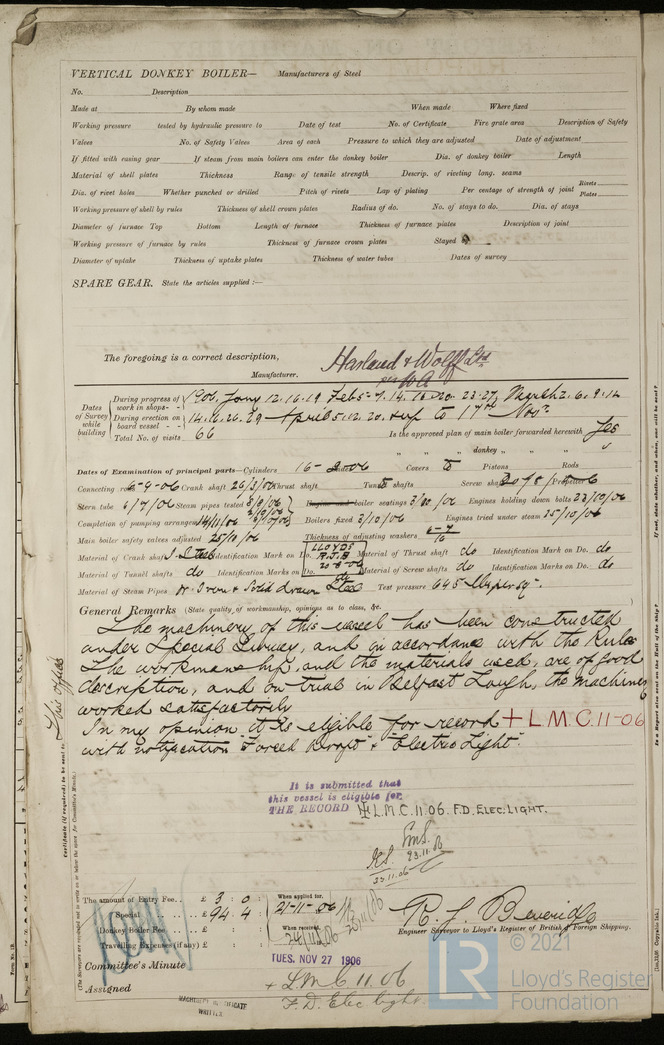 VERTICAL DONKEY BOILER— Manufacturers of Steel
No. Description
Made at By whom made When made Where fixed
Working pressure tested by hydraulic pressure to Date of test No. of Certificate Fire grate area Description of Safety
Valves No. of Safety Valves Area of each Pressure to which they are adjusted Date of adjustment
If fitted with easing gear If steam from main boilers can enter the donkey boiler Dia. of donkey boiler Length
Material of shell plates Thickness Range of tensile strength Descrip. of riveting long. seams
Dia. of rivet holes Whether punched or drilled Pitch of rivets Lap of plating Per centage of strength of joint Rivets Plates
Working pressure of shell by rules Thickness of shell crown plates Radius of do. No. of stays to do. Dia. of stays
Diameter of furnace Top Bottom Length of furnace Thickness of furnace plates Description of joint
Working pressure of furnace by rules Thickness of furnace crown plates Stayed by
Diameter of uptake Thickness of uptake plates Thickness of water tubes Dates of survey
SPARE GEAR. State the articles supplied :—
The foregoing is a correct description,
Harland & Wolff Ltd
Manufacturer.
Dates of Survey while building
During progress of work in shops - - 1906. Jany 12. 16. 19 Feb 5. 7. 14. 16. 20. 23. 27, March 2. 6. 9. 12
During erection on board vessel - - 14. 16. 26. 29 April 5. 12. 20. & up to 17th Novr
Total No. of visits 66 Is the approved plan of main boiler forwarded herewith Yes
" " " donkey " " "
Dates of Examination of principal parts—Cylinders 16- Covers do Pistons Rods
Connecting rods 6-9-06 Crank shaft 26/3/06 Thrust shaft Tunnel shafts Screw shaft 20/8/ Propeller 6
Stern tube 6/7/06 Steam pipes tested Engine and boiler seatings /06 Engines holding down bolts 23/10/06
Completion of pumping arrangements 14/11/06 Boilers fixed 3/10/06 Engines tried under steam 25/10/06
Main boiler safety valves adjusted 25/10/06 Thickness of adjusting washers
Material of Crank shaft I. Steel Identification Mark on Do. LLOYDS R.J.B 20-8-06 Material of Thrust shaft do Identification Mark on Do. do
Material of Tunnel shafts do Identification Marks on Do. Material of Screw shafts do Identification Marks on Do. do
Material of Steam Pipes W. Iron & Solid drawn Steel Test pressure 645 lbs per sq".
General Remarks (State quality of workmanship, opinions as to class, &c.
The machinery of this vessel has been constructed
under Special Survey, and in accordance with the Rules
The workmanship, and the materials used, are of good
description, and on trial in Belfast Lough, the machinery
worked satisfactorily
In my opinion it is eligible for record + L.M.C. 11-06
with notification "Forced Draft" & "Electric Light".
It is submitted that
this vessel is eligible for
THE RECORD + L.M.C. 11.06. F.D. ELEC. LIGHT.
23.11.06
23.11.06
The amount of Entry Fee.. £ 3 : 0 : When applied for,
Special £ 94 . 4 21-11-06
Donkey Boiler Fee £ : : When received,
Travelling Expenses (if any) £ : :
R. J. Beveridge
Engineer Surveyor to Lloyd's Register of British & Foreign Shipping.
Committee's Minute TUES. NOV 27 1906
Assigned + L.M.C. 11.06
F.D. Elec light
MACHINERY CERTIFICATE
WRITTEN
This office
Certificate (if required) to be sent to
(The Surveyors are requested not to write on or below the space for Committee's Minute.)
© 2021
LR
Lloyd's Register
Foundation